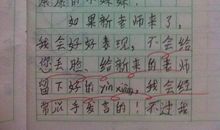 如果新老师来了，
我会好好表现，不会给
您丢脸，给新来的老师
留下好的yin xiang，我会经
常举手发言的！不过我